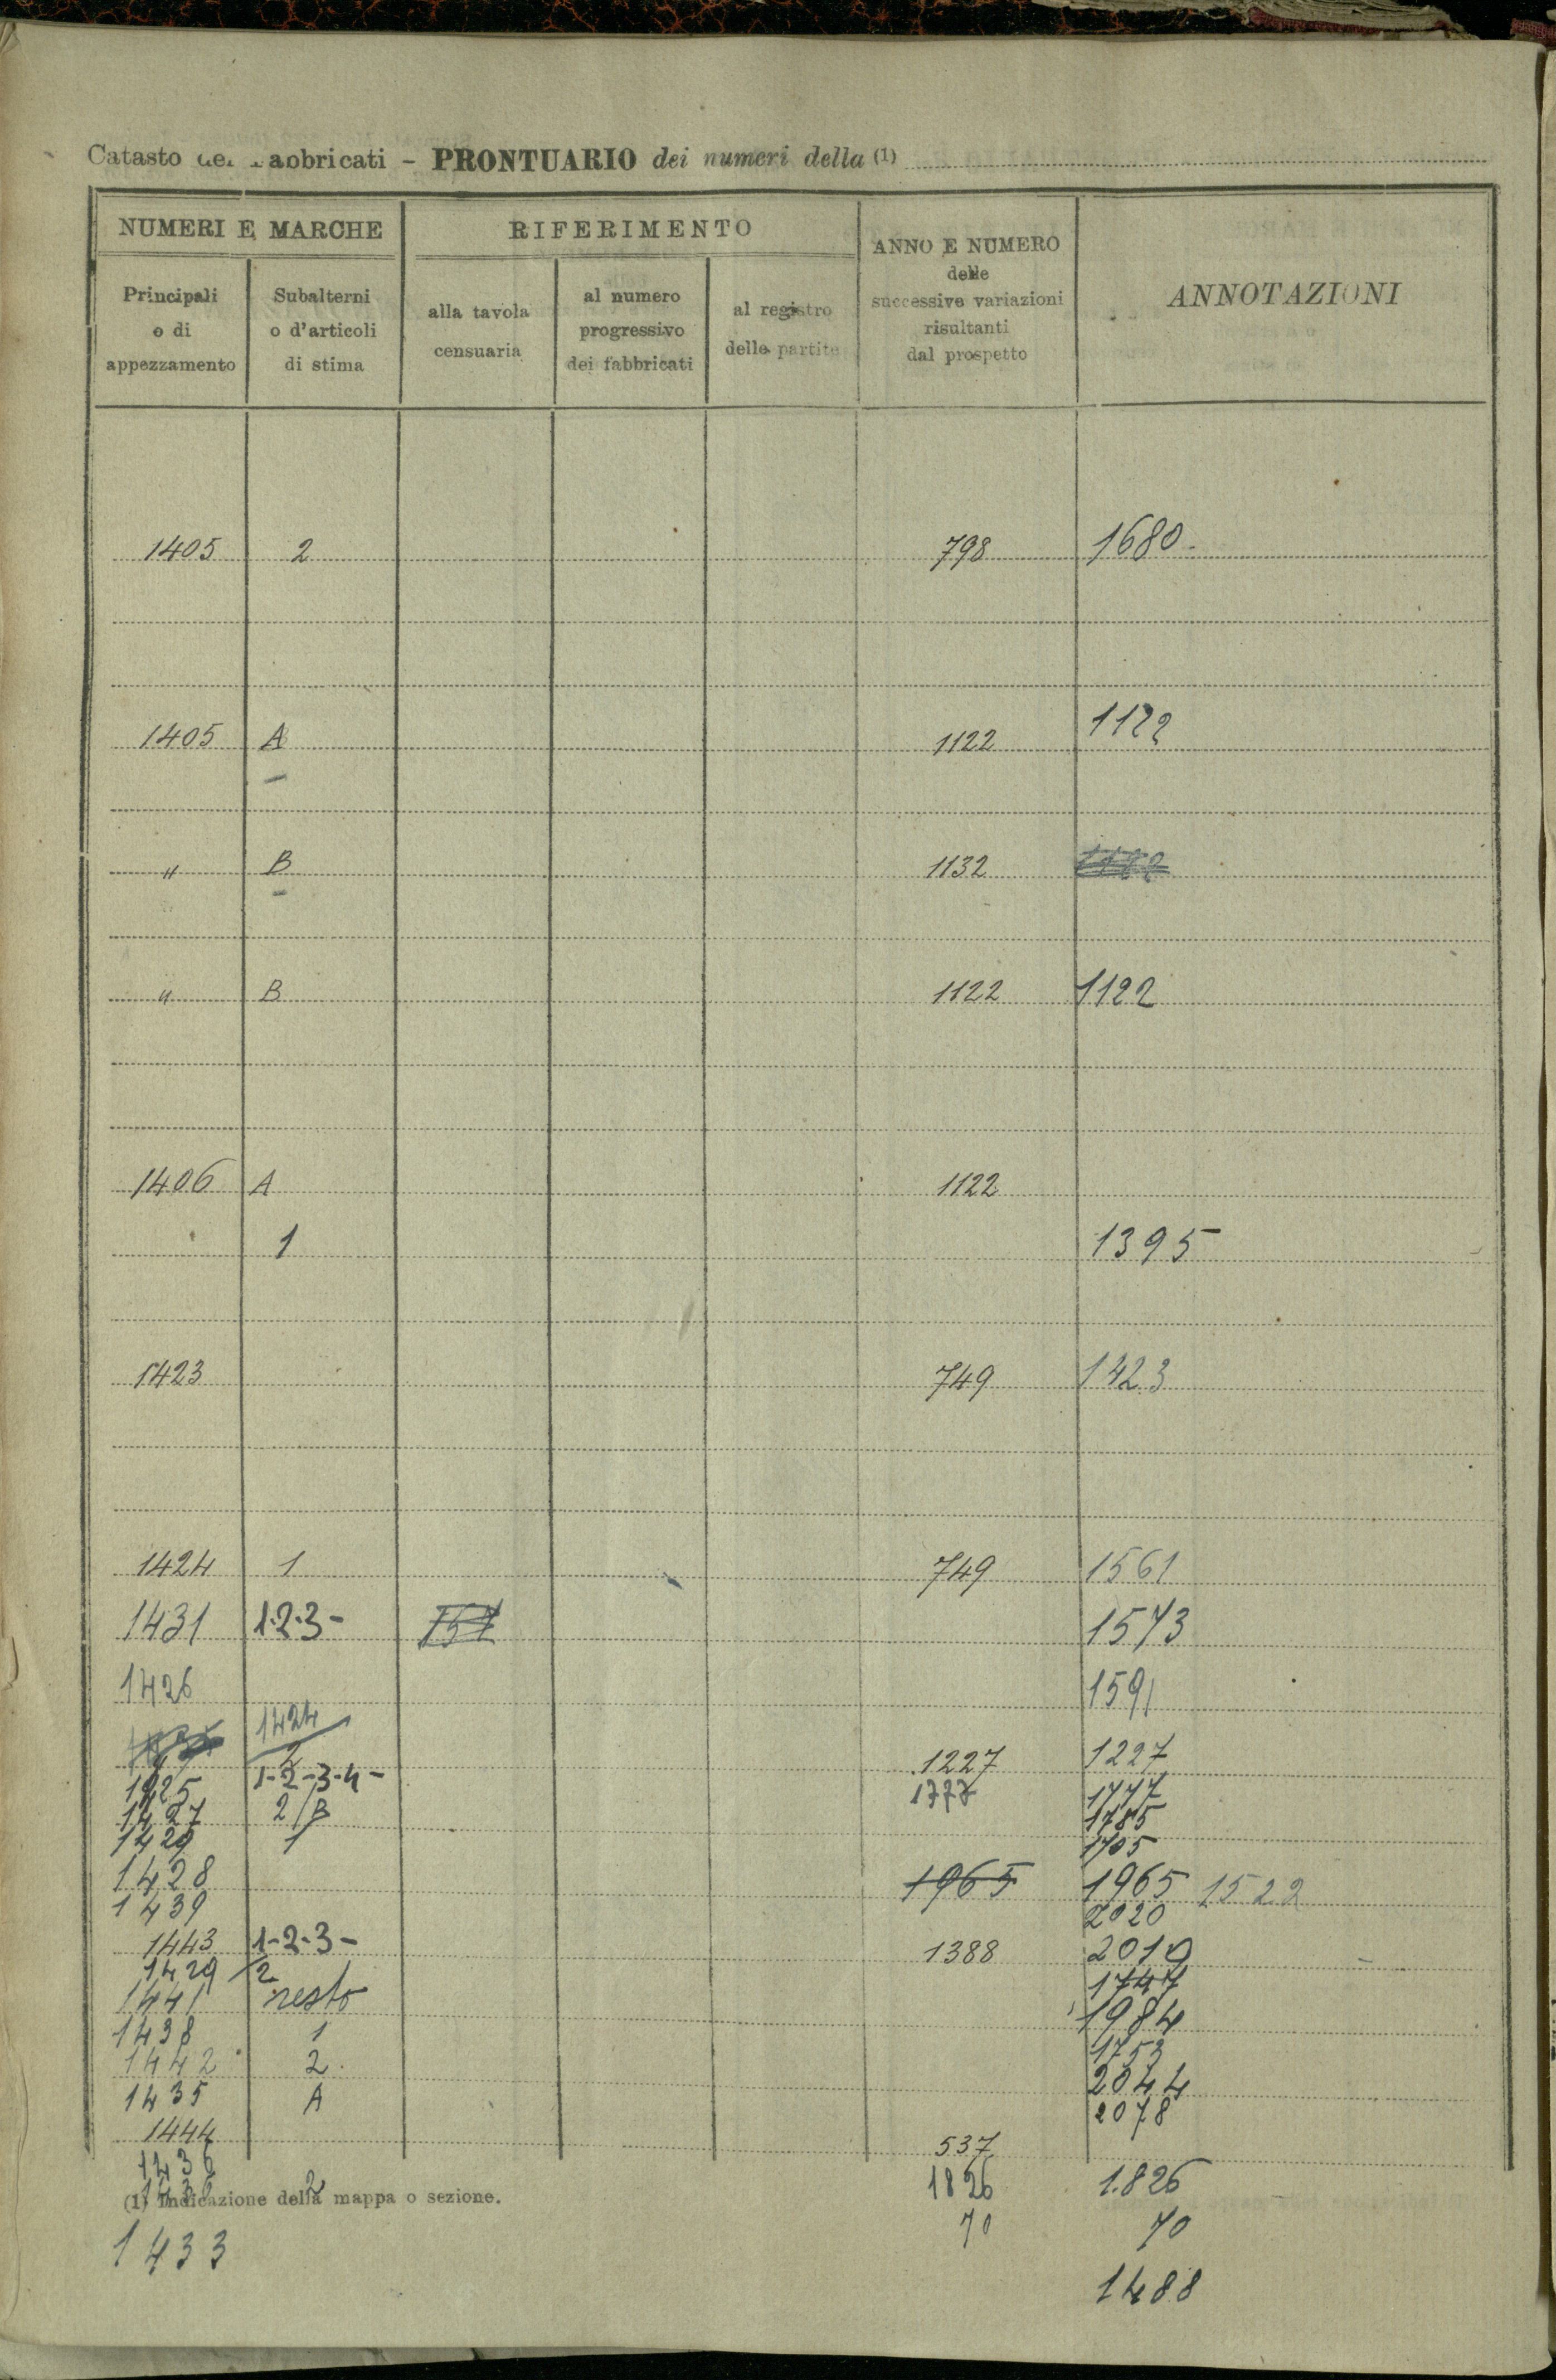 Catasto dei Fabbricati - PRONTUARIO dei numeri della (1)
NUMERI E MARCHE RIFERIMENTO ANNO E NUMERO delle successive variazioni risultanti dal prospetto ANNOTAZIONI
Principali o di appezzamento Subalterni o d'articoli di stima alla tavola censuaria al numero progressivo dei fabbricati al registro delle partite
1405 2 798 1680.
1405 A 1122 1122
" B 1132 1122
" B 1122 1122
1406 A 1122
1 1395
1423 749 1423
1424 1 749 1561
1431 1.2.3- 151 1573
1426 1591
1424
2 1227 1227
1425 1-2-3-4- 1777 1777
1427 2/B 1785
1429 1 1705
1428 1965 1965 1522
1439 2020
1443 1-2-3- 1388 2019
1429 2 1747
1441 resto 1984
1438 1 1753
1442 2. 2044
1435 A 2078
1444 537
1436 1826 1.826
1432 2 70 70
(1) Indicazione della mappa o sezione.
1433 1488